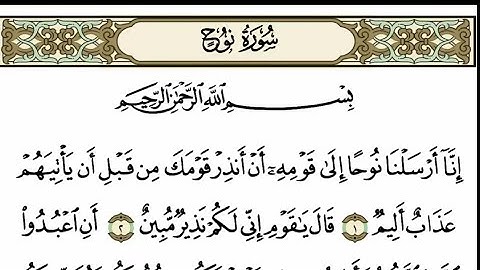 سُورَةُ نُوحٍ
بِسْمِ اللَّهِ الرَّحْمَٰنِ الرَّحِيمِ
إِنَّآ أَرْسَلْنَا نُوحًا إِلَىٰ قَوْمِهِۦٓ أَنْ أَنذِرْ قَوْمَكَ مِن قَبْلِ أَن يَأْتِيَهُمْ
عَذَابٌ أَلِيمٌ ١ قَالَ يَٰقَوْمِ إِنِّى لَكُمْ نَذِيرٌ مُّبِينٌ ٢ أَنِ ٱعْبُدُوا۟